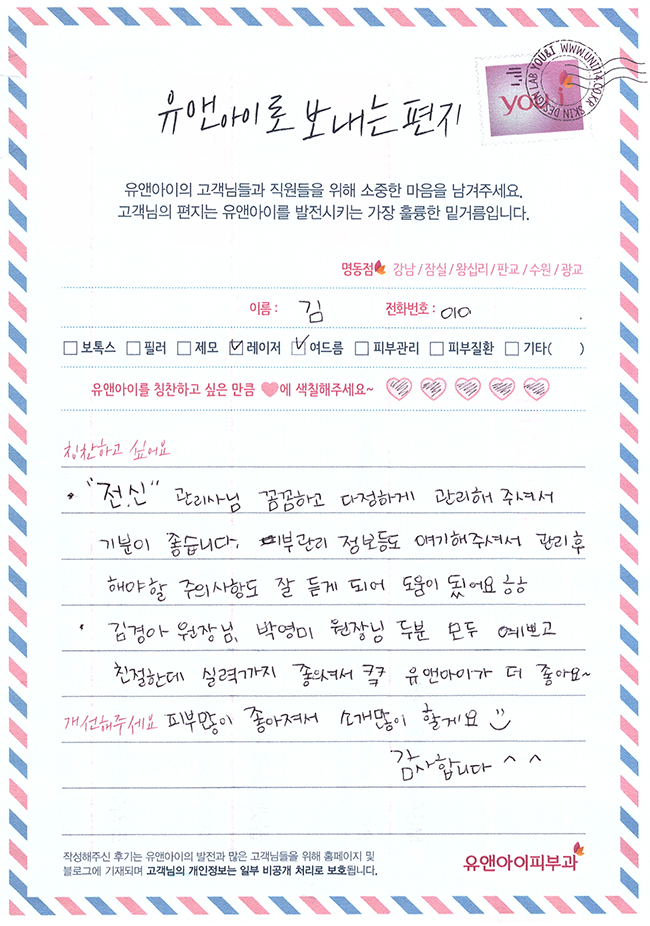 유앤아이로 보내는 편지
you i
SKIN DESIGN LAB YOU&I WWW.UNI114.CO.KR
유앤아이의 고객님들과 직원들을 위해 소중한 마음을 남겨주세요.
고객님의 편지는 유앤아이를 발전시키는 가장 훌륭한 밑거름입니다.
명동점 강남 / 잠실 / 왕십리 / 판교 / 수원 / 광교
이름 : 김 전화번호 : 010 .
보톡스 필러 제모 레이저 여드름 피부관리 피부질환 기타( )
유앤아이를 칭찬하고 싶은 만큼 ♥에 색칠해주세요~
칭찬하고 싶어요
• "전신" 관리사님 꼼꼼하고 다정하게 관리해 주셔서
기분이 좋습니다. 피부관리 정보등도 얘기해주셔서 관리후
해야할 주의사항도 잘 듣게 되어 도움이 됬어요 ㅎㅎ
• 김경아 원장님, 박영미 원장님 두분 모두 예쁘고
친절한데 실력까지 좋으셔서 굿굿 유앤아이가 더 좋아요~
개선해주세요 피부많이 좋아져서 소개많이 할게요
감사합니다 ^ ^
작성해주신 후기는 유앤아이의 발전과 많은 고객님들을 위해 홈페이지 및
블로그에 기재되며 고객님의 개인정보는 일부 비공개 처리로 보호됩니다.
유앤아이피부과